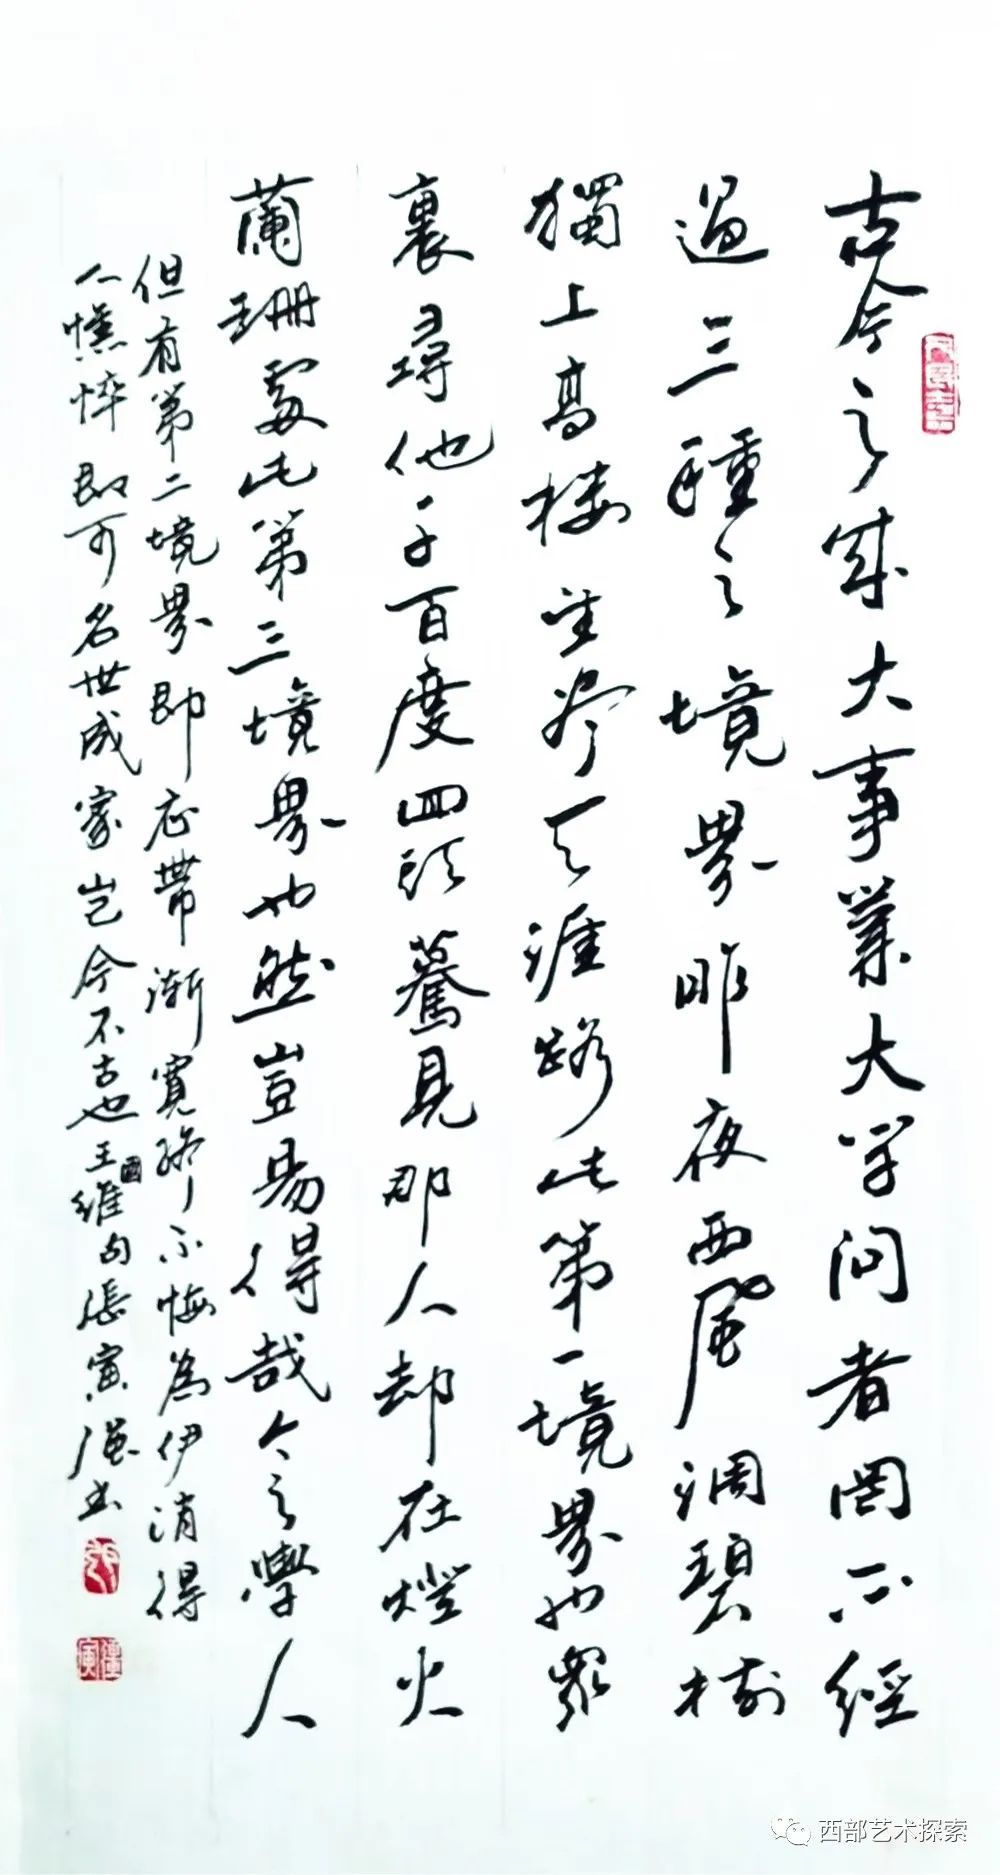 古今之成大事業大学问者罔不經
過三種之境界昨夜西風凋碧樹
獨上髙楼望尽天涯路此第一境界也眾
裏尋他千百度回頭驀見那人却在燈火
蘭珊處此第三境界也然豈易得哉今之學人
但有第二境界即衣带漸寬終不悔為伊消得
人憔悴即可名世成家岂今不古也王國維句張寅强书
西部艺术探索